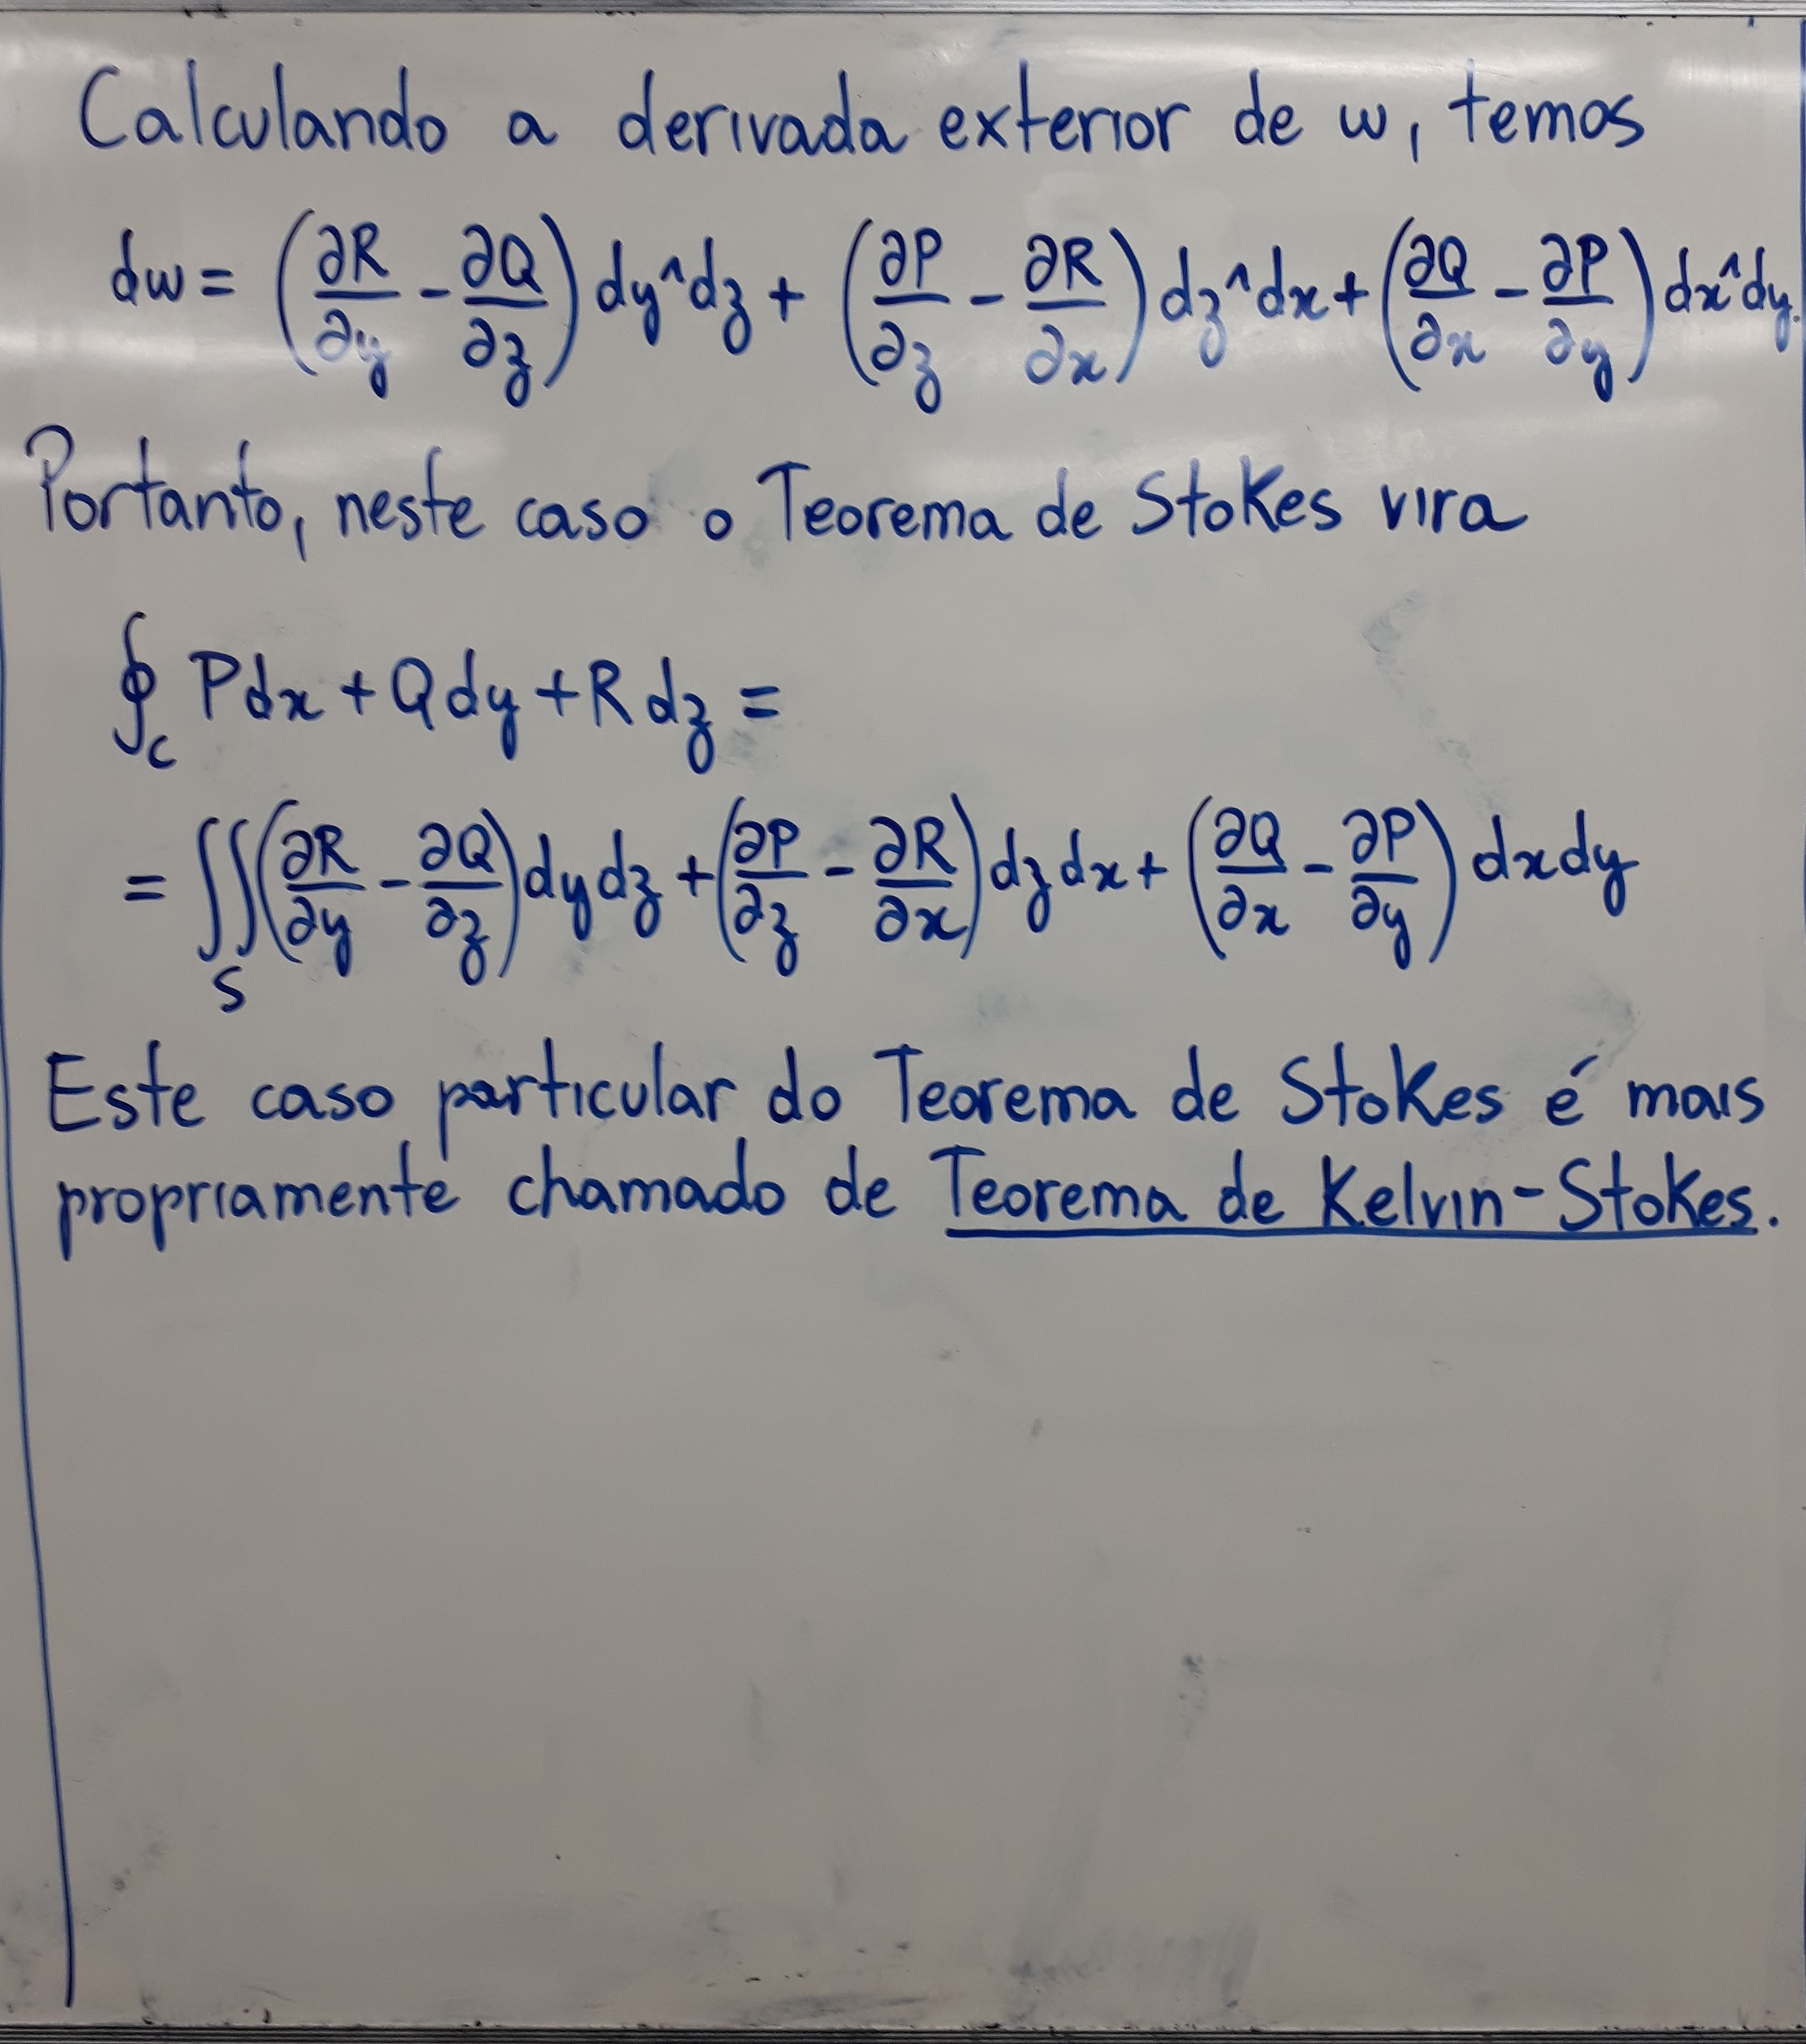 Calculando a derivada exterior de w, temos
dw = (∂R/∂y - ∂Q/∂z) dy^dz + (∂P/∂z - ∂R/∂x) dz^dx + (∂Q/∂x - ∂P/∂y) dx^dy.
Portanto, neste caso o Teorema de Stokes vira
∮_C Pdx + Qdy + Rdz =
= ∬_S (∂R/∂y - ∂Q/∂z) dydz + (∂P/∂z - ∂R/∂x) dzdx + (∂Q/∂x - ∂P/∂y) dxdy
Este caso particular do Teorema de Stokes é mais
propriamente chamado de Teorema de Kelvin-Stokes.